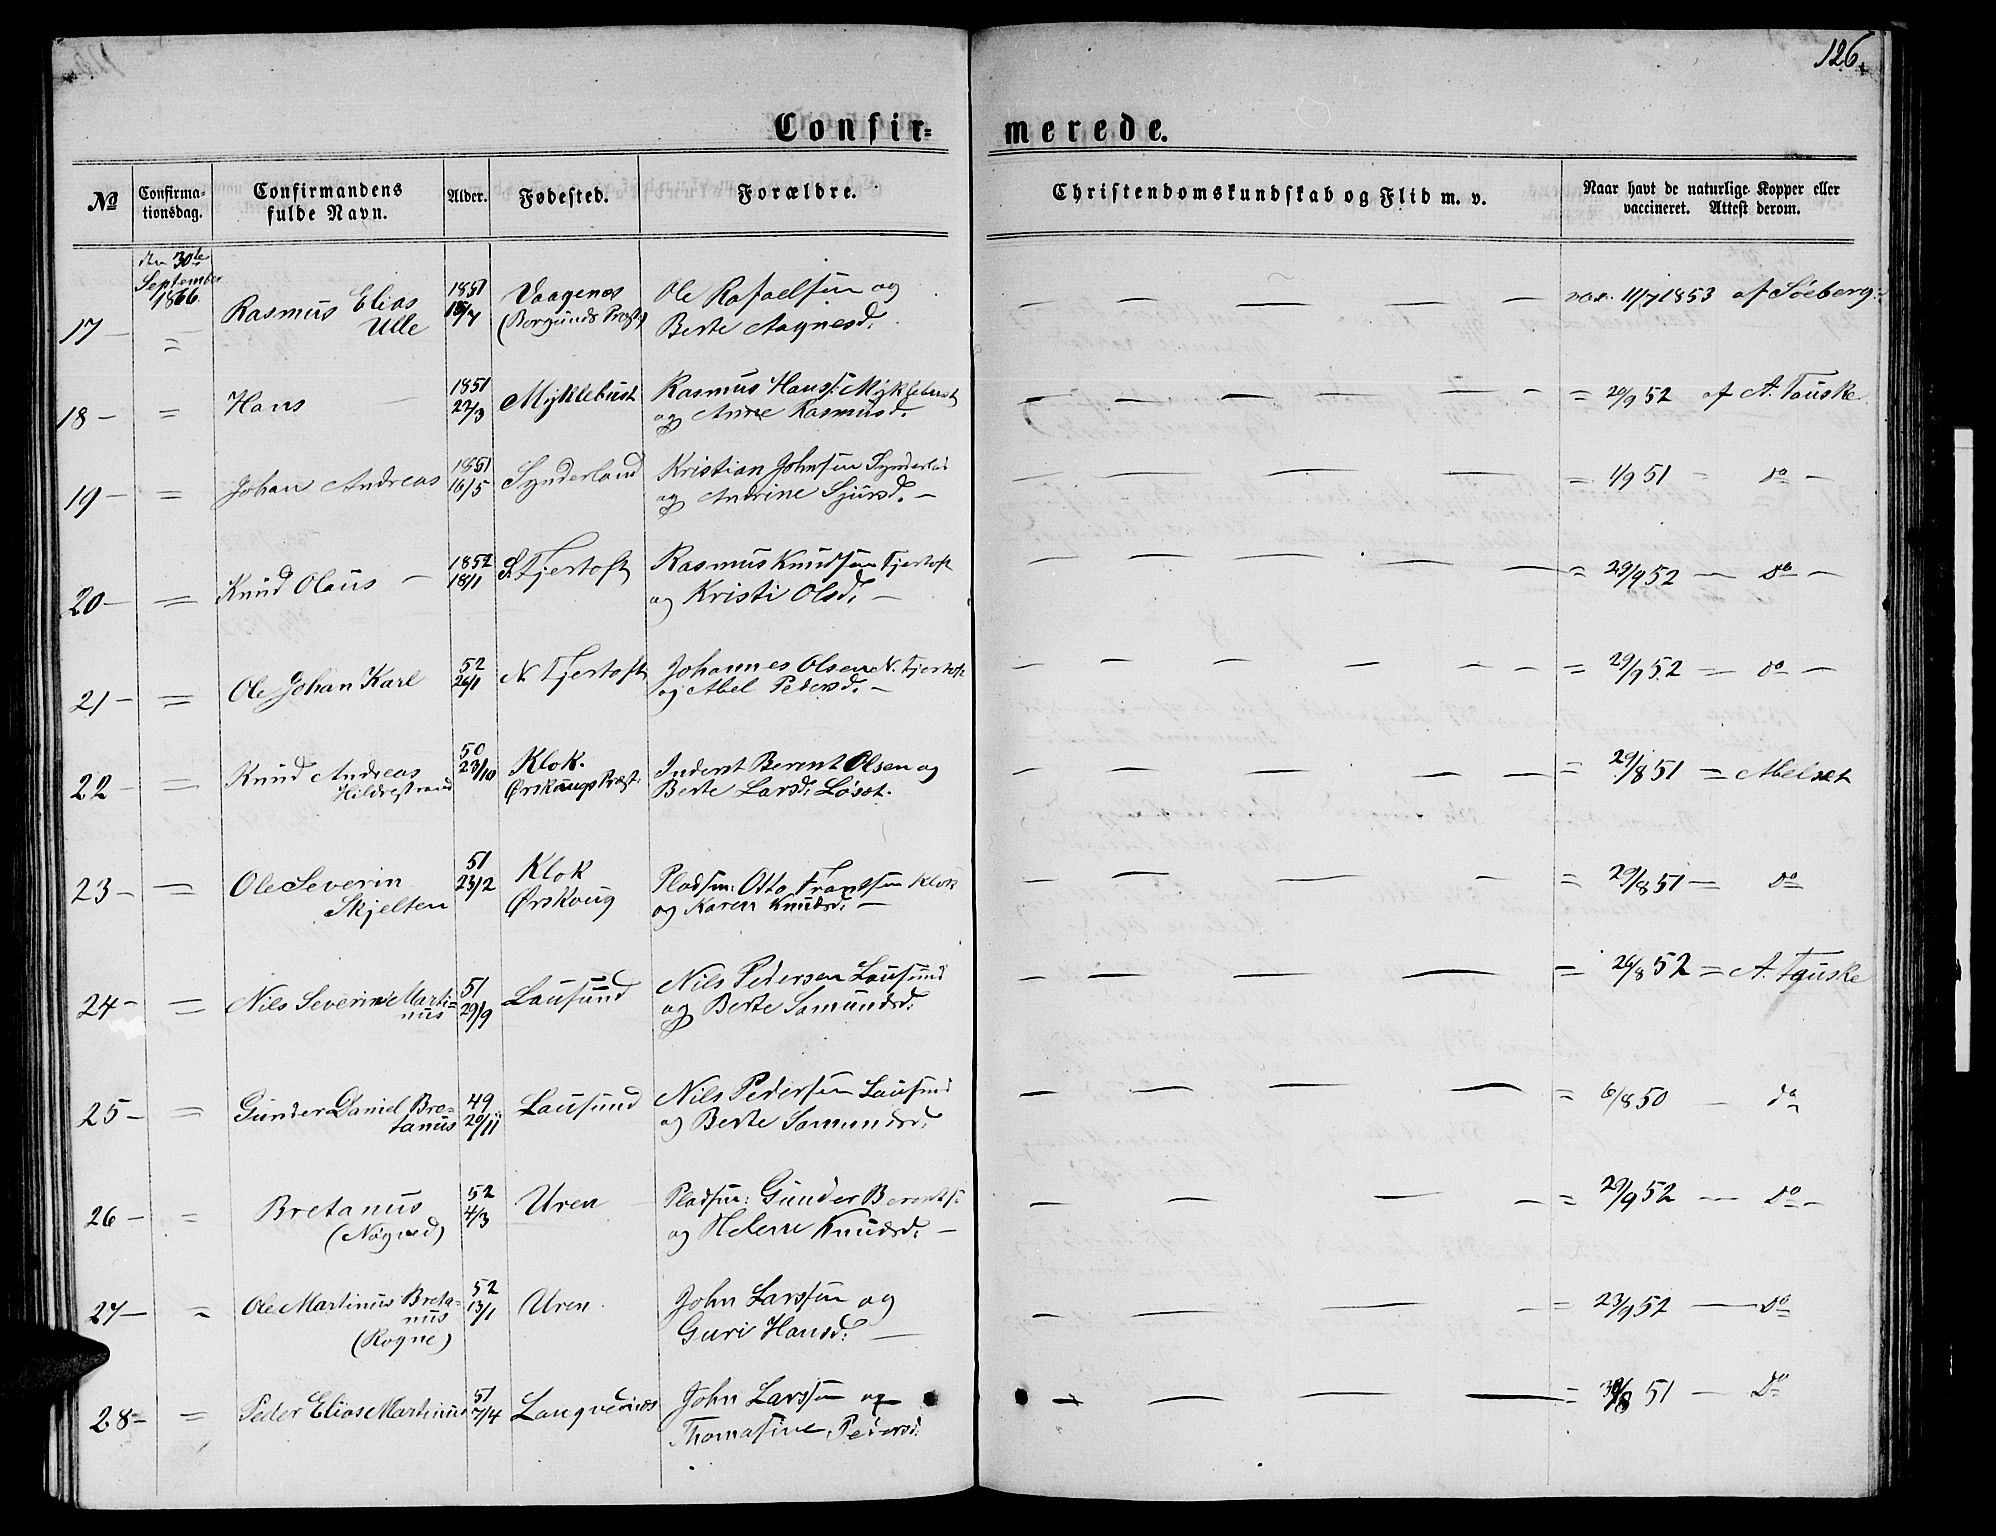 126.
Confir=
merede.
No
Confirma-
tionsdag.
Confirmandens
fulde Navn.
Alder.
Fødested.
Forældre.
Christendomskundskab og Flid m. v.
Naar havt de naturlige Kopper eller
vaccineret. Attest derom.
den 30te
September
1866
17 – = Rasmus Elias Ulle 1851 Vaagenes (Borgunds Præst:) Ole Rafaelsen og
Berte Aagnesd. vac. 11/7 1853 af Søeberg
18 – = Hans 1851 27/3 Myklebust Rasmus Hanss. Myklebust
og Anne Rasmusd. = 20/9 52 af A. Tauske
19 – = Johan Andreas 1851 16/5 Synderland Kristian Johnsen Synderland
og Andrine Sjursd. – = 1/9 51 do –
20 – = Knud Olaus – 1852 18/1 S. Fjertoft Rasmus Knudsen Fjertoft
og Kristi Olsd. – = 29/9 52 – do –
21 – = Ole Johan Karl 52 26/1 N. Fjertoft Johannes Olsen N. Fjertoft
og Abel Pedersd. – = 29/9 52 – do –
22 – = Knud Andreas Hildrestrand 50 23/10 Klok. Ørskougs Præst: Inderst Berent Olsen og
Berte Larsd. Løset. = 29/8 51 = Abelset
23 – = Ole Severin Skjelten 51 23/2 Klok Ørskoug Pladsm: Otto Frantsen Klok
og Karen Knudsd. – = 29/8 51 – do
24 – = Nils Severin Marti-
nus 51 29/9 Lausund Nils Pedersen Lausund
og Berte Samundsd. = 26/8 52 = A. Tauske
25 – = Gunder Daniel Bre-
tanus 49 20/11 Lausund Nils Pedersen Lausund
og Berte Samundsd. = 6/8 50 – do
26 – = Bretanus 52 4/3 Uren Pladsm: Gunder Berents.
og Helene Knudsd. – = 29/9 52 – do –
27 – = Ole Martinus Breta-
nus
(Rogne) 52 13/1 Uren John Larssen og
Guri Hansd. – = 23/9 52 – do
28 – = Peder Elias Martinus 51 7/4 Longvenes John Larssen og
Thomasine Pedersd. = 51 – do